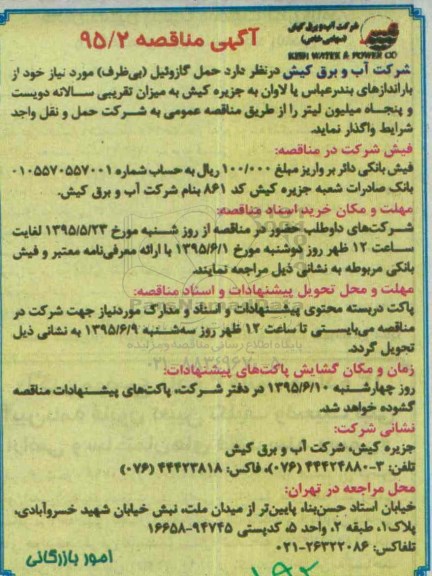 شرکت آب و برق کیش
(سهامی خاص)
KISH WATER & POWER CO
آگهی مناقصه ۹۵/۲
شرکت آب و برق کیش درنظر دارد حمل گازوئیل (بی‌ظرف) مورد نیاز خود از
باراندازهای بندرعباس یا لاوان به جزیره کیش به میزان تقریبی سالانه دویست
و پنجاه میلیون لیتر را از طریق مناقصه عمومی به شرکت حمل و نقل واجد
شرایط واگذار نماید.
فیش شرکت در مناقصه:
فیش بانکی دائر بر واریز مبلغ ۱۰۰/۰۰۰ ریال به حساب شماره ۰۱۰۵۵۷۰۵۵۷۰۰۱
بانک صادرات شعبه جزیره کیش کد ۸۶۱ بنام شرکت آب و برق کیش.
مهلت و مکان خرید اسناد مناقصه:
شرکت‌های داوطلب حضور در مناقصه از روز شنبه مورخ ۱۳۹۵/۵/۲۳ لغایت
ساعت ۱۲ ظهر روز دوشنبه مورخ ۱۳۹۵/۶/۱ با ارائه معرفی‌نامه معتبر و فیش
بانکی مربوطه به نشانی ذیل مراجعه نمایند.
مهلت و محل تحویل پیشنهادات و اسناد مناقصه:
پاکت دربسته محتوی پیشنهادات و اسناد و مدارک موردنیاز جهت شرکت در
مناقصه می‌بایستی تا ساعت ۱۲ ظهر روز سه‌شنبه ۱۳۹۵/۶/۹ به نشانی ذیل
تحویل گردد.
زمان و مکان گشایش پاکت‌های پیشنهادات:
روز چهارشنبه ۱۳۹۵/۶/۱۰ در دفتر شرکت، پاکت‌های پیشنهادات مناقصه
گشوده خواهد شد.
نشانی شرکت:
جزیره کیش، شرکت آب و برق کیش
تلفن: ۳-۴۴۴۲۴۸۸۰ (۰۷۶)، فاکس: ۴۴۴۲۳۸۱۸ (۰۷۶)
محل مراجعه در تهران:
خیابان استاد حسن‌بنا، پایین‌تر از میدان ملت، نبش خیابان شهید خسروآبادی،
پلاک۱، طبقه ۲، واحد ۵، کدپستی ۹۴۷۴۵-۱۶۶۵۸
تلفاکس: ۲۶۳۲۲۰۸۶-۰۲۱
امور بازرگانی